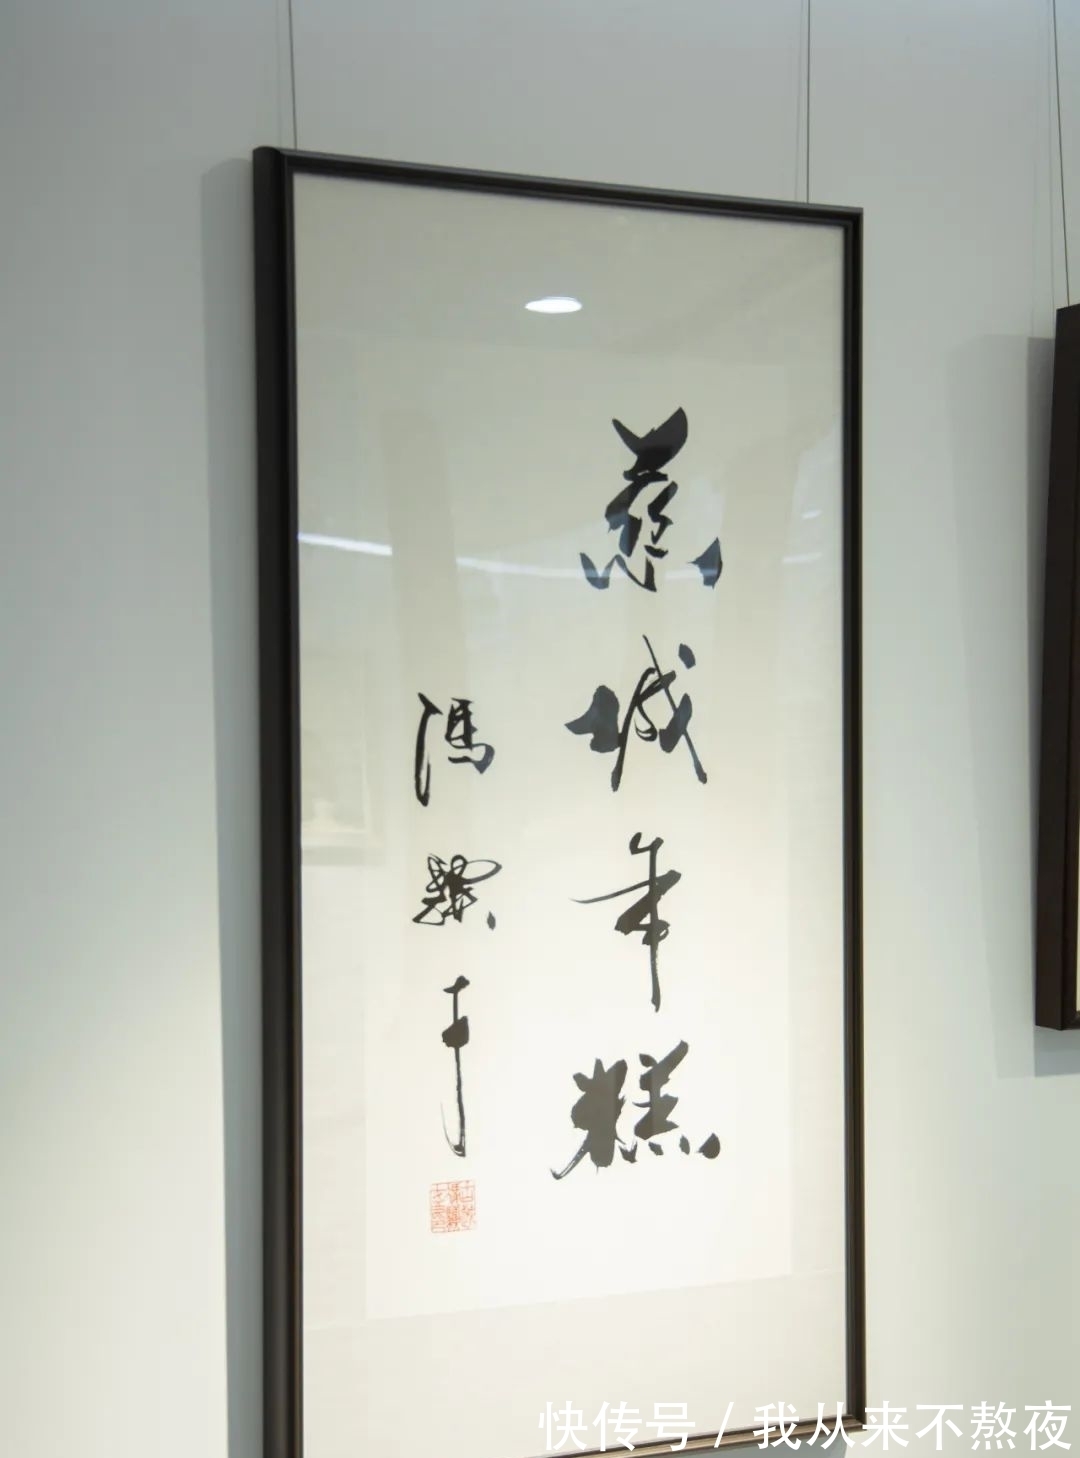 慈城年糕
冯骥才
快传号 / 我从来不熬夜